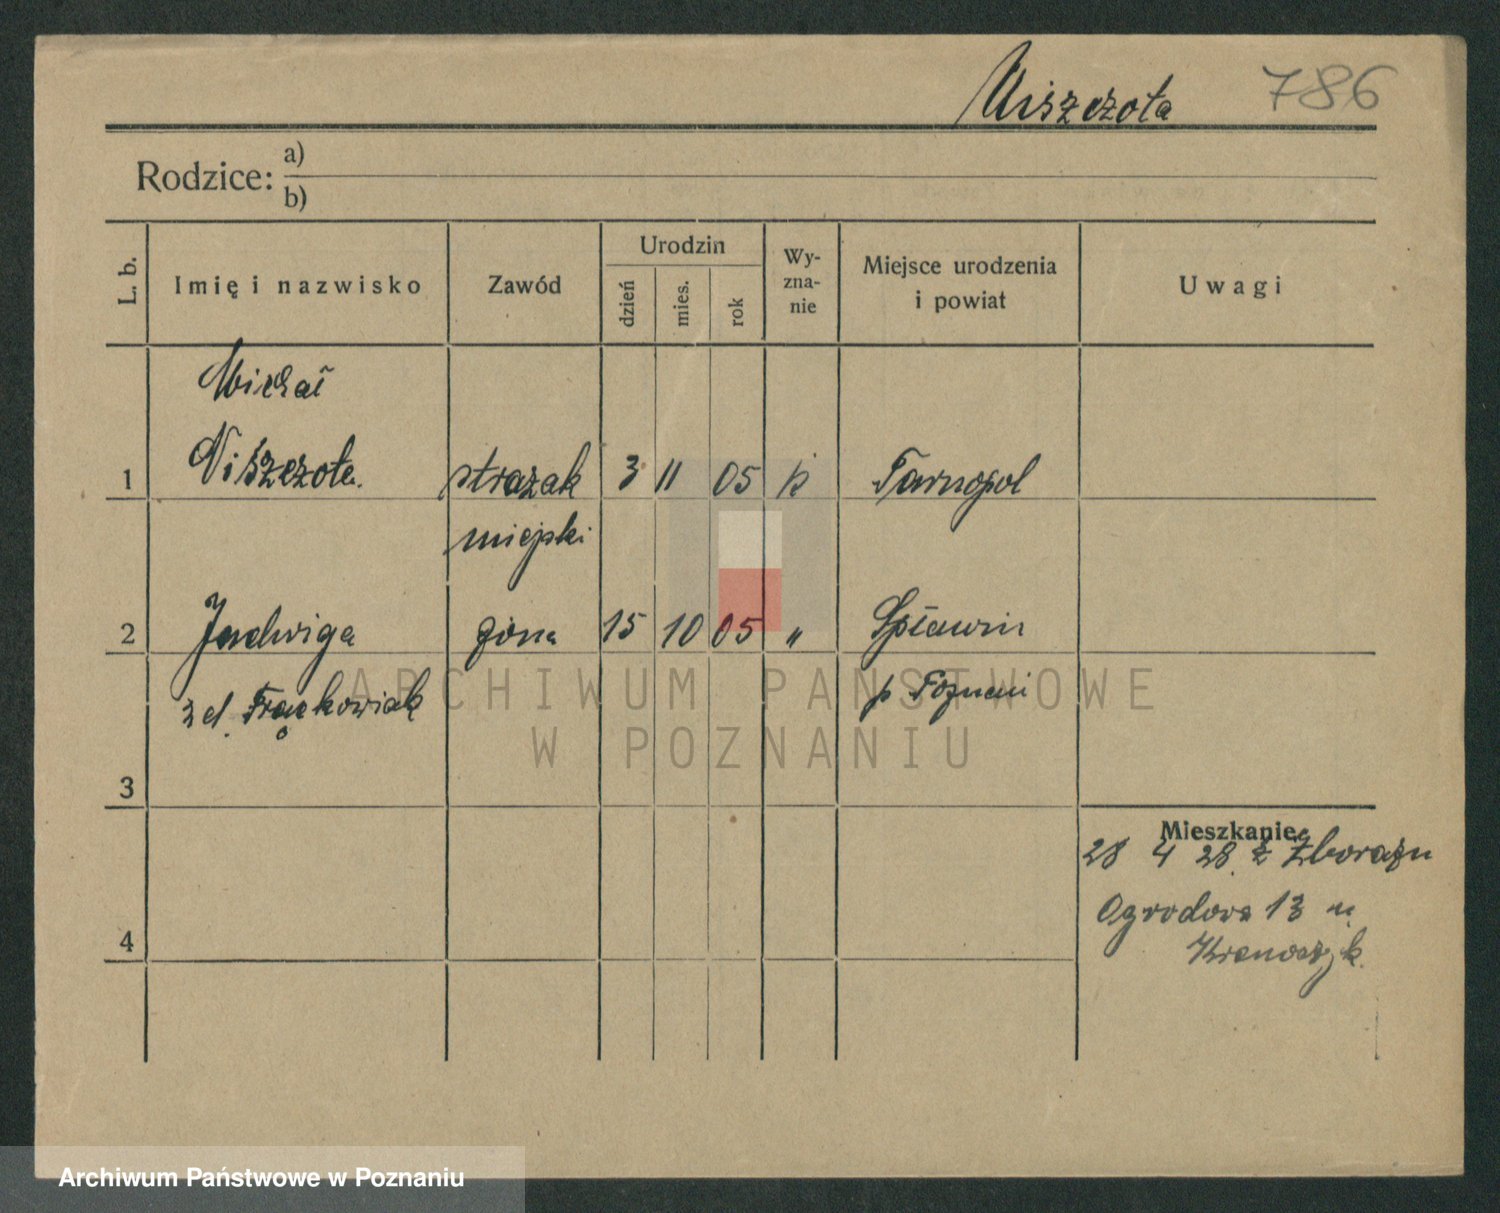 Niszczota 786
Rodzice: a)
b)
L. b. Imię i nazwisko Zawód Urodzin dzień mies. rok Wy-zna-nie Miejsce urodzenia i powiat Uwagi
Michał
1 Niszczota. strażak 3 11 05 k Tarnopol
miejski
2 Jadwiga żona 15 10 05 " Spławin
z d. Frąckowiak p Poznań
3
Mieszkanie
28 4 28. z Zboražu
Ogrodowa 13 u.
4
ARCHIWUM PAŃSTWOWE
W POZNANIU
Archiwum Państwowe w Poznaniu